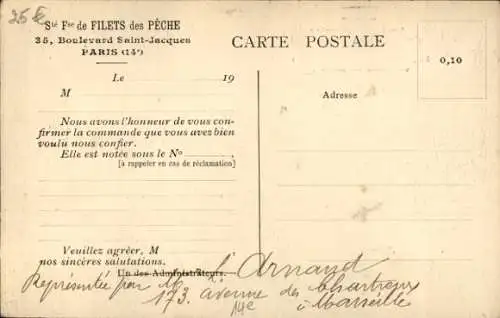 25 €
Sté Fse de FILETS des PÊCHE
35, Boulevard Saint-Jacques
PARIS (14e)
CARTE POSTALE
0,10
Le 19
M
Adresse
Nous avons l'honneur de vous con-
firmer la commande que vous avez bien
voulu nous confier.
Elle est notée sous le No
[à rappeler en cas de réclamation]
Veuillez agréer, M
nos sincères salutations.
Un des Administrateurs.
Représentée par M. l'Arnaud
173. avenue des Chartreux
14e à Marseille